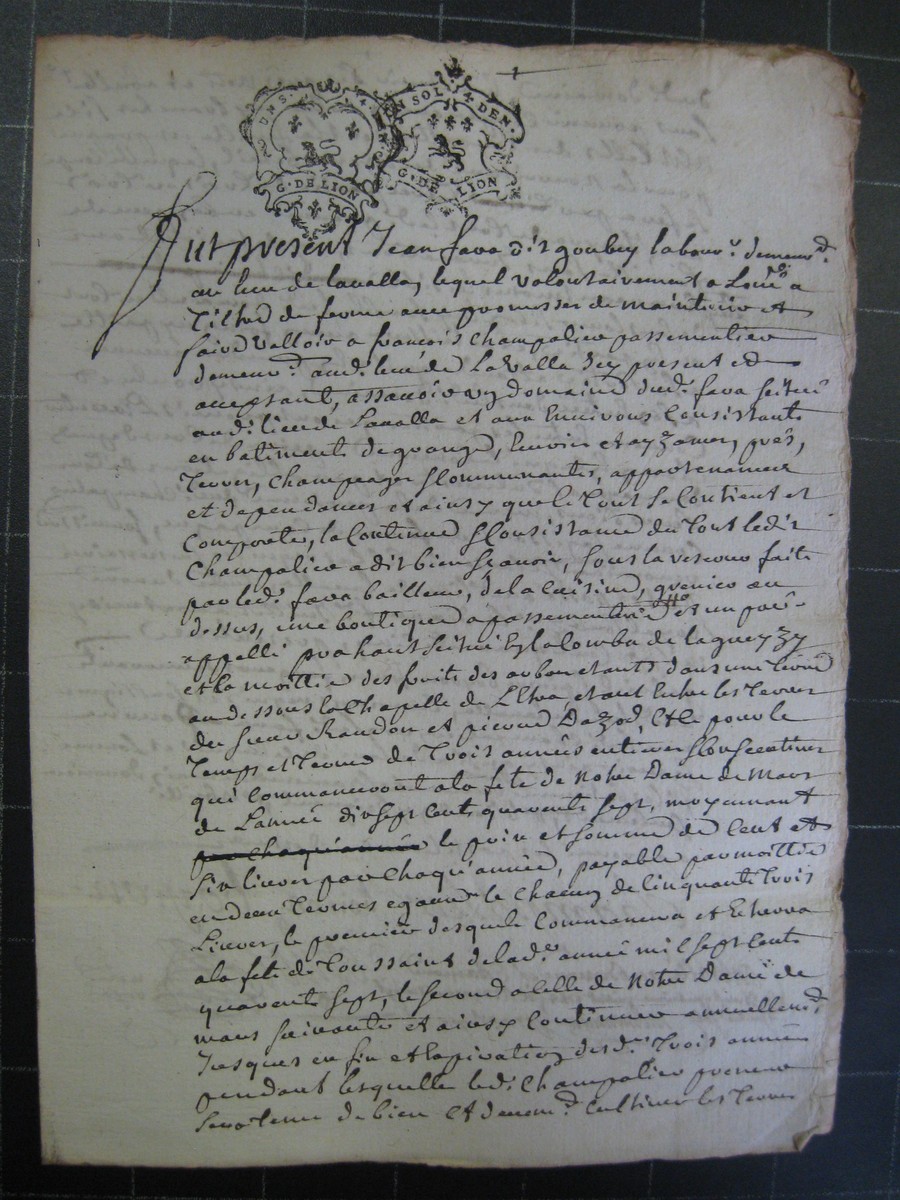 UN SOL. 4. DEN.
G. DE LION
UN SOL. 4. DEN.
G. DE LION
1
Fut present Jean fava dit goubey labour.r demeur.t
au lieu de lavalla, lequel volontairement a
Tiltre de ferme avec promesses de maintenir et
faire Valloir a francois Champalier passementier
demeur.t aud. lieu de LaValla Icy present et
acceptant, assavoir un domaine dud. fava scitué
aud. lieu de Lavalla et aux Environs Consistant
en batiments de grange, Ecurie et prés,
Terres, Champeages Communantes, appartenances
et dependances et ainsy que le Tout se Contient et
Comporte, la Contenue Consistance du Tout ledit
Champalier a dit bien scavoir, sous la reserve faite
par led. fava bailleur, de la cuisine, grenier au
dessus, une boutique a passementerie et un pré
appellé pra haut scitué
et la moittie des fruits des arbres etants dans une Terre
au dessous la Chapelle de Leytra, etant Entre les Terres
des sieurs Randon et picon et ce pour le
Temps et Terme de Trois années entieres Consecutives
qui Commanceront a la fete de Notre Dame de Mars
de L'année dix sept Cents quarante sept, moyennant
par chaqu'année le prix et somme de Cent et
six livres par Chaqu'année, payable par moittie
en deux Termes egaux le Chacun de Cinquante Trois
Livres, le premier desquels Commancera et Echerra
a la fete de Toussaint de lad. année mil sept Cents
quarante sept, le second a celle de Notre Dame de
mars suivante et ainsy Continuer annuellem.t
Jusques en fin et Expiration desd. Trois années
pendant lesquelles led. Champalier preneur
sera Tenu de bien et deuem.t Cultiver les Terres